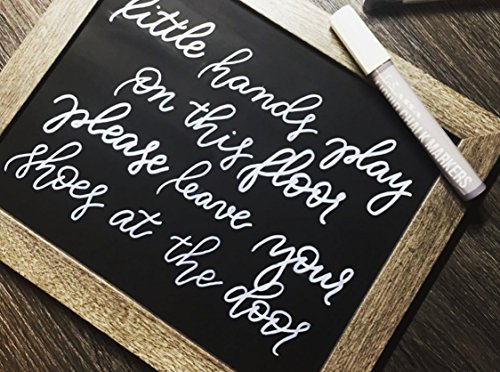 little hands play
on this floor
please leave your
shoes at the door
CHALK MARKERS